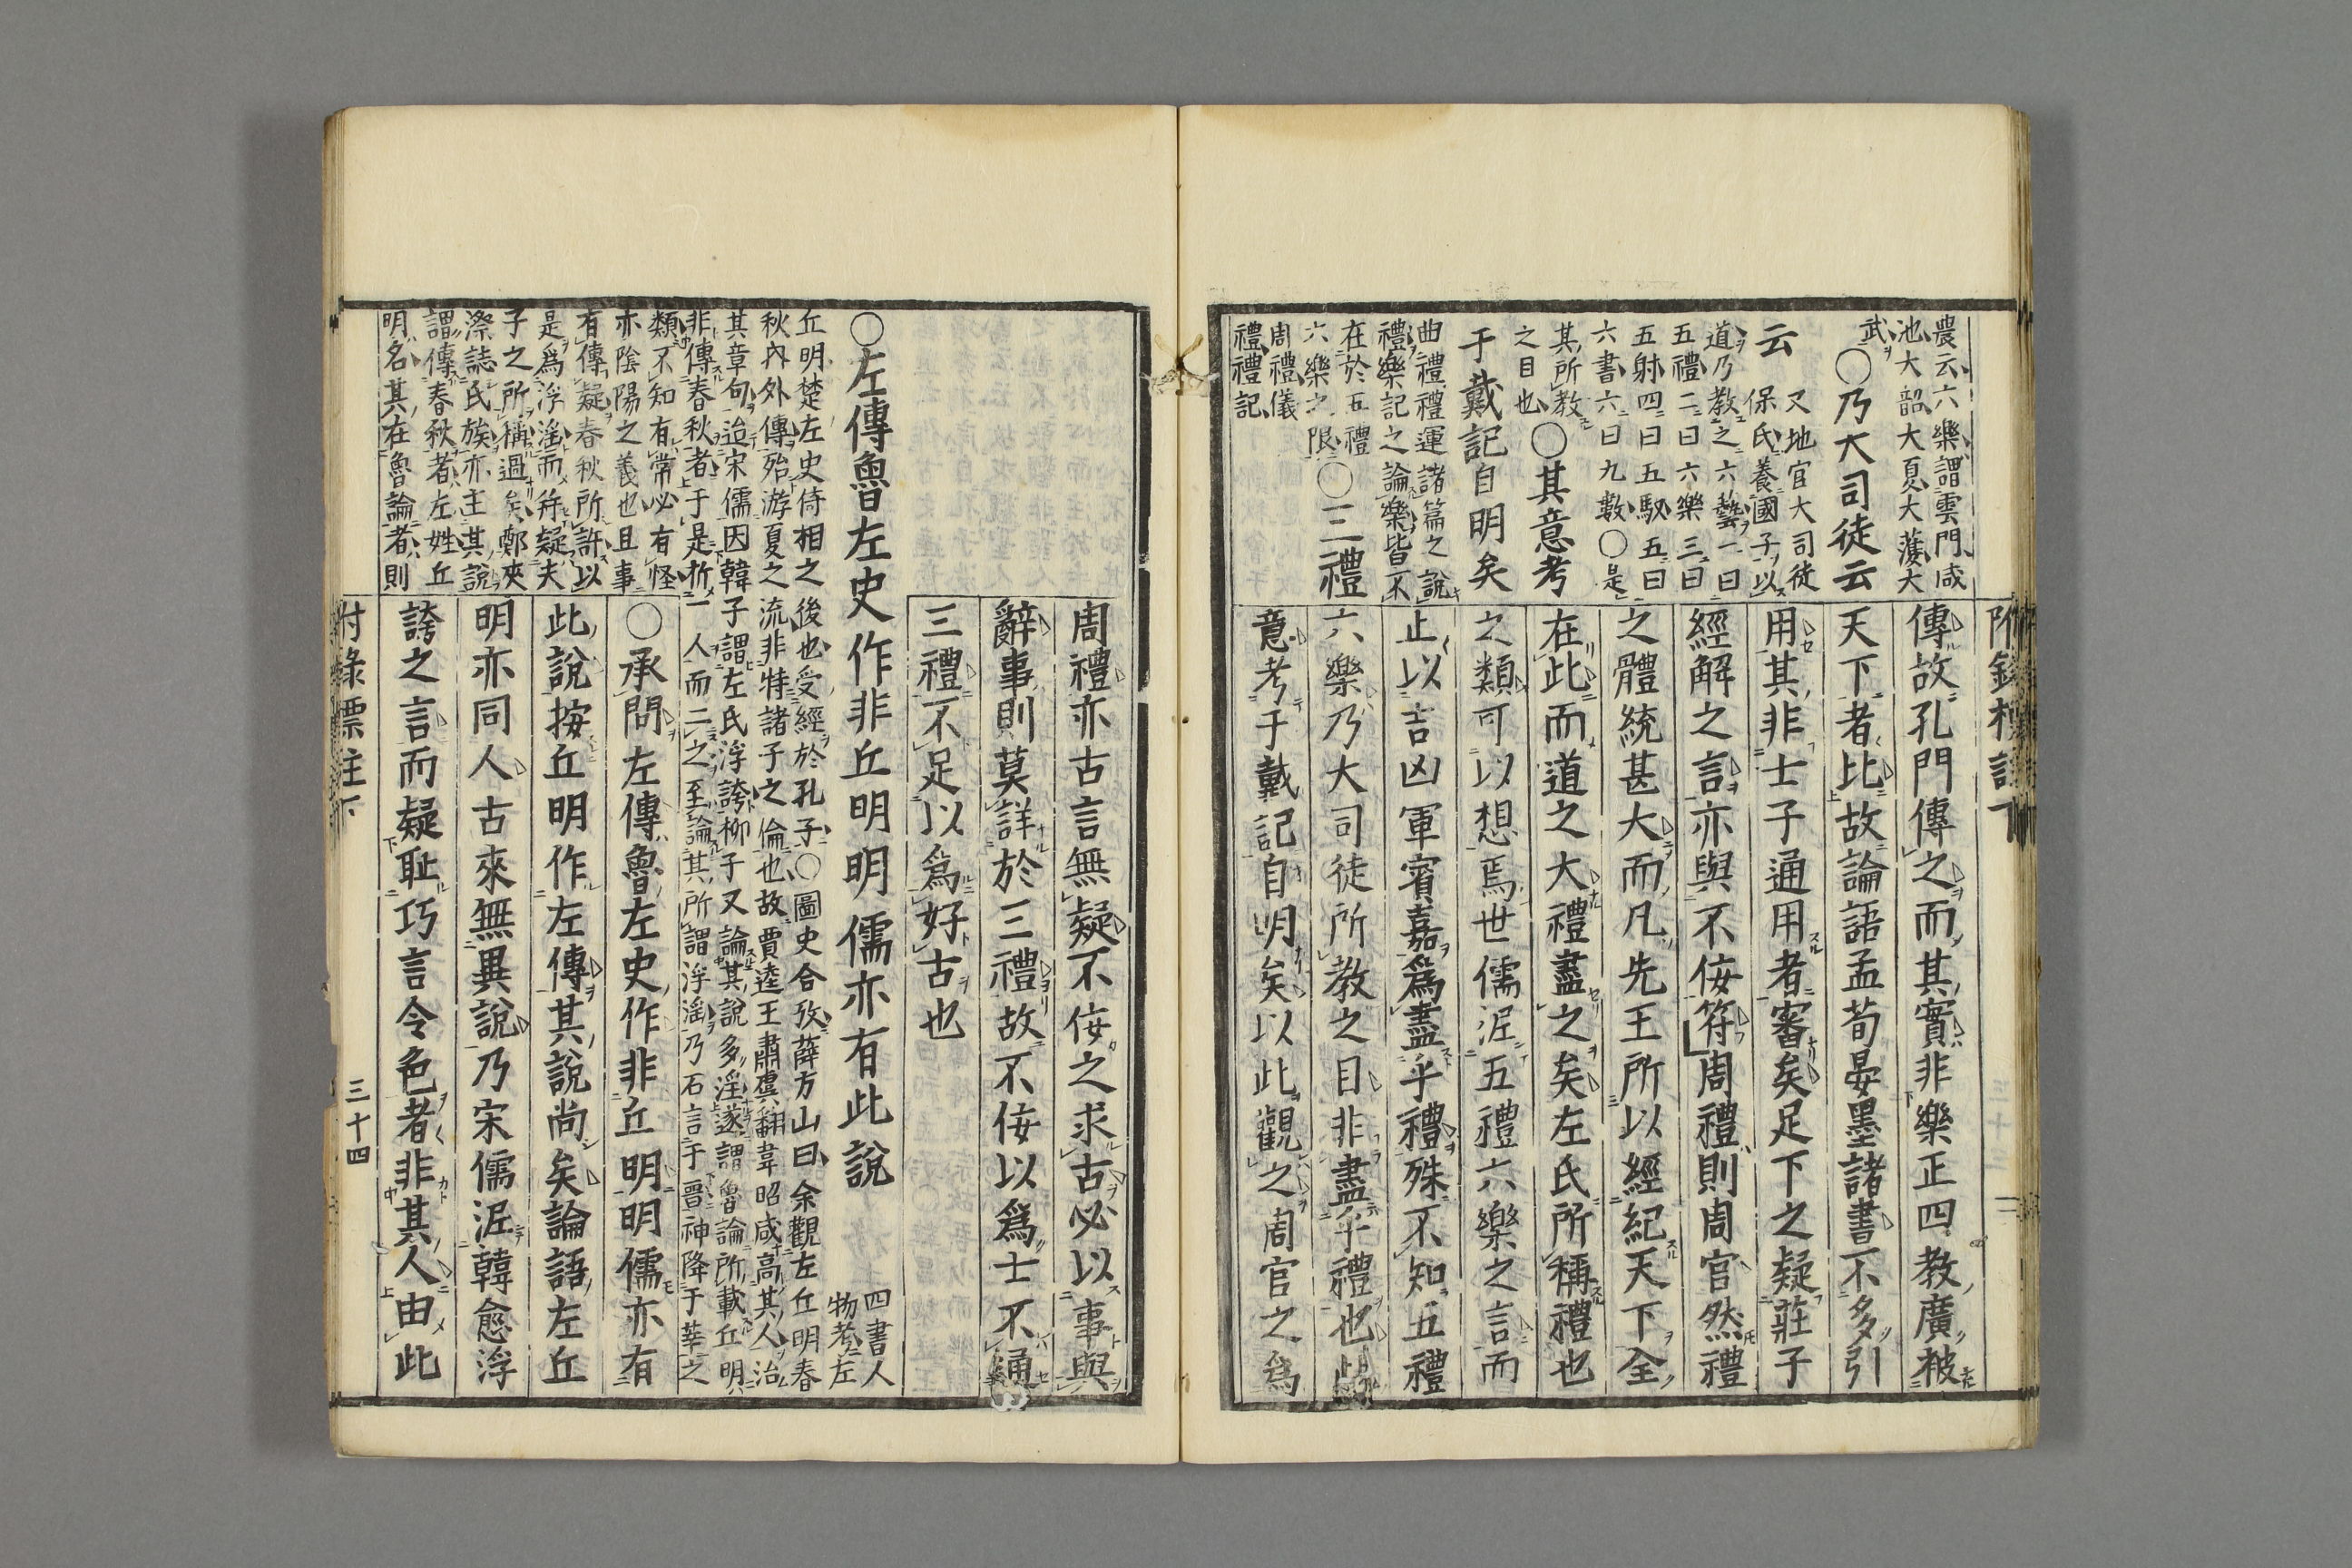 農云六樂謂雲門咸
池大韶大夏大濩大
武
○乃大司徒云
云
又地官大司徒
保氏養國子以
道乃教之六藝一曰
五禮二曰六樂三曰
五射四曰五馭五曰
六書六曰九數○是
其所教
之目也
○其意考
于戴記自明矣
曲禮禮運諸篇之說
禮樂記之論樂皆不
在於五禮
六樂之限
○三禮
周禮儀
禮禮記
傳故孔門傳之而其實非樂正四教廣被
天下者比故論語孟荀晏墨諸書不多引
用其非士子通用者審矣足下之疑莊子
經解之言亦與不侫符周禮則周官然禮
之體統甚大而凡先王所以經紀天下全
在此而道之大禮盡之矣左氏所稱禮也
之類可以想焉世儒泥五禮六樂之言而
止以吉凶軍賓嘉爲盡乎禮殊不知五禮
六樂乃大司徒所教之目非盡乎禮也
意考于戴記自明矣以此觀之周官之爲
周禮亦古言無疑不侫之求古必以事與
辭事則莫詳於三禮故不侫以爲士不通
三禮不足以爲好古也
○左傳魯左史作非丘明明儒亦有此說
四書人
物考左
丘明楚左史倚相之後也受經於孔子○圖史合攷薛方山曰余觀左丘明春
秋內外傳殆游夏之流非特諸子之倫也故賈逵王肅虞翻韋昭咸高其人治
其章句迨宋儒因韓子謂左氏浮誇柳子又論其說多淫遂謂魯論所載丘明
非傳春秋者于是析一人而二之至論其所謂浮淫乃石言于晉神降于莘之
類不知有常必有怪
亦陰陽之義也且事
有傳疑春秋所許以
是爲浮淫而幷疑夫
子之所稱過矣鄭夾
漈誌氏族亦主其說
謂傳春秋者左姓丘
明名其在魯論者則
○承問左傳魯左史作非丘明明儒亦有
此說按丘明作左傳其說尚矣論語左丘
明亦同人古來無異說乃宋儒泥韓愈浮
誇之言而疑恥巧言令色者非其人由此
附錄標註下
三十四